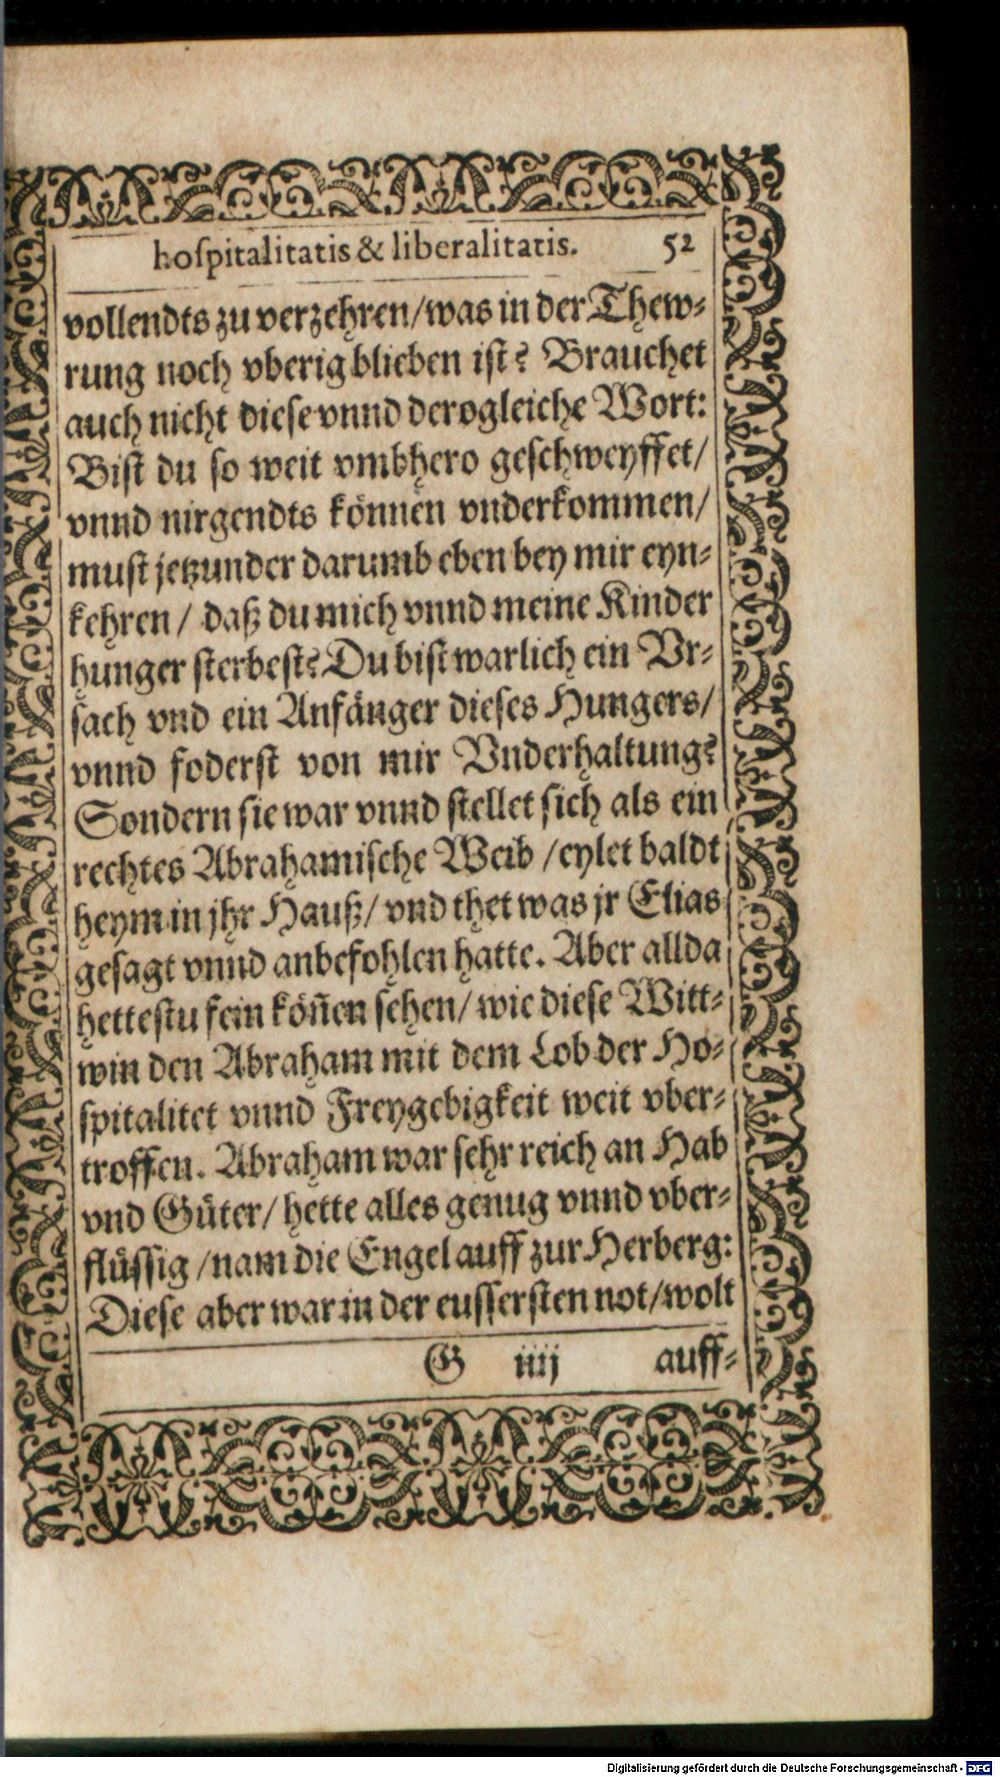 hoſpitalitatis & liberalitatis. 52
vollendts zu verzehren/was in der Thew⸗
rung noch vberig blieben iſt? Brauchet
auch nicht dieſe vnnd derogleiche Wort:
Biſt du ſo weit vmbhero geſchweyffet/
vnnd nirgendts können vnderkommen/
muſt jetzunder darumb eben bey mir eyn⸗
kehren/ daß du mich vnnd meine Kinder
hunger ſterbeſt? Du biſt warlich ein Vr⸗
ſach vnd ein Anfänger dieſes Hungers/
vnnd foderſt von mir Vnderhaltung?
Sondern ſie war vnnd ſtellet ſich als ein
rechtes Abrahamiſche Weib /eylet baldt
heym in jhr Hauß/ vnd thet was jr Elias
geſagt vnnd anbefohlen hatte. Aber allda
hetteſtu fein köñen ſehen/ wie dieſe Witt⸗
win den Abraham mit dem Lob der Ho⸗
ſpitalitet vnnd Freygebigkeit weit vber⸗
troffen. Abraham war ſehr reich an Hab
vnd Güter/ hette alles genug vnnd vber⸗
flüſſig /nam die Engel auff zur Herberg:
Dieſe aber war in der euſſerſten not/wolt
G iiij auff⸗
Digitalisierung gefördert durch die Deutsche Forschungsgemeinschaft - DFG